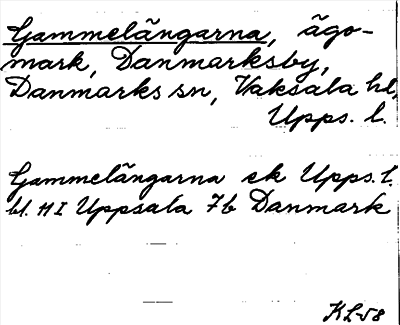 Gammelängarna, ägo-
mark, Danmarksby,
Danmarks sn, Vaksala hd,
Upps. l.
Gammelängarna ek Upps. l.
bl. 11 I Uppsala 7b Danmark
KL-58